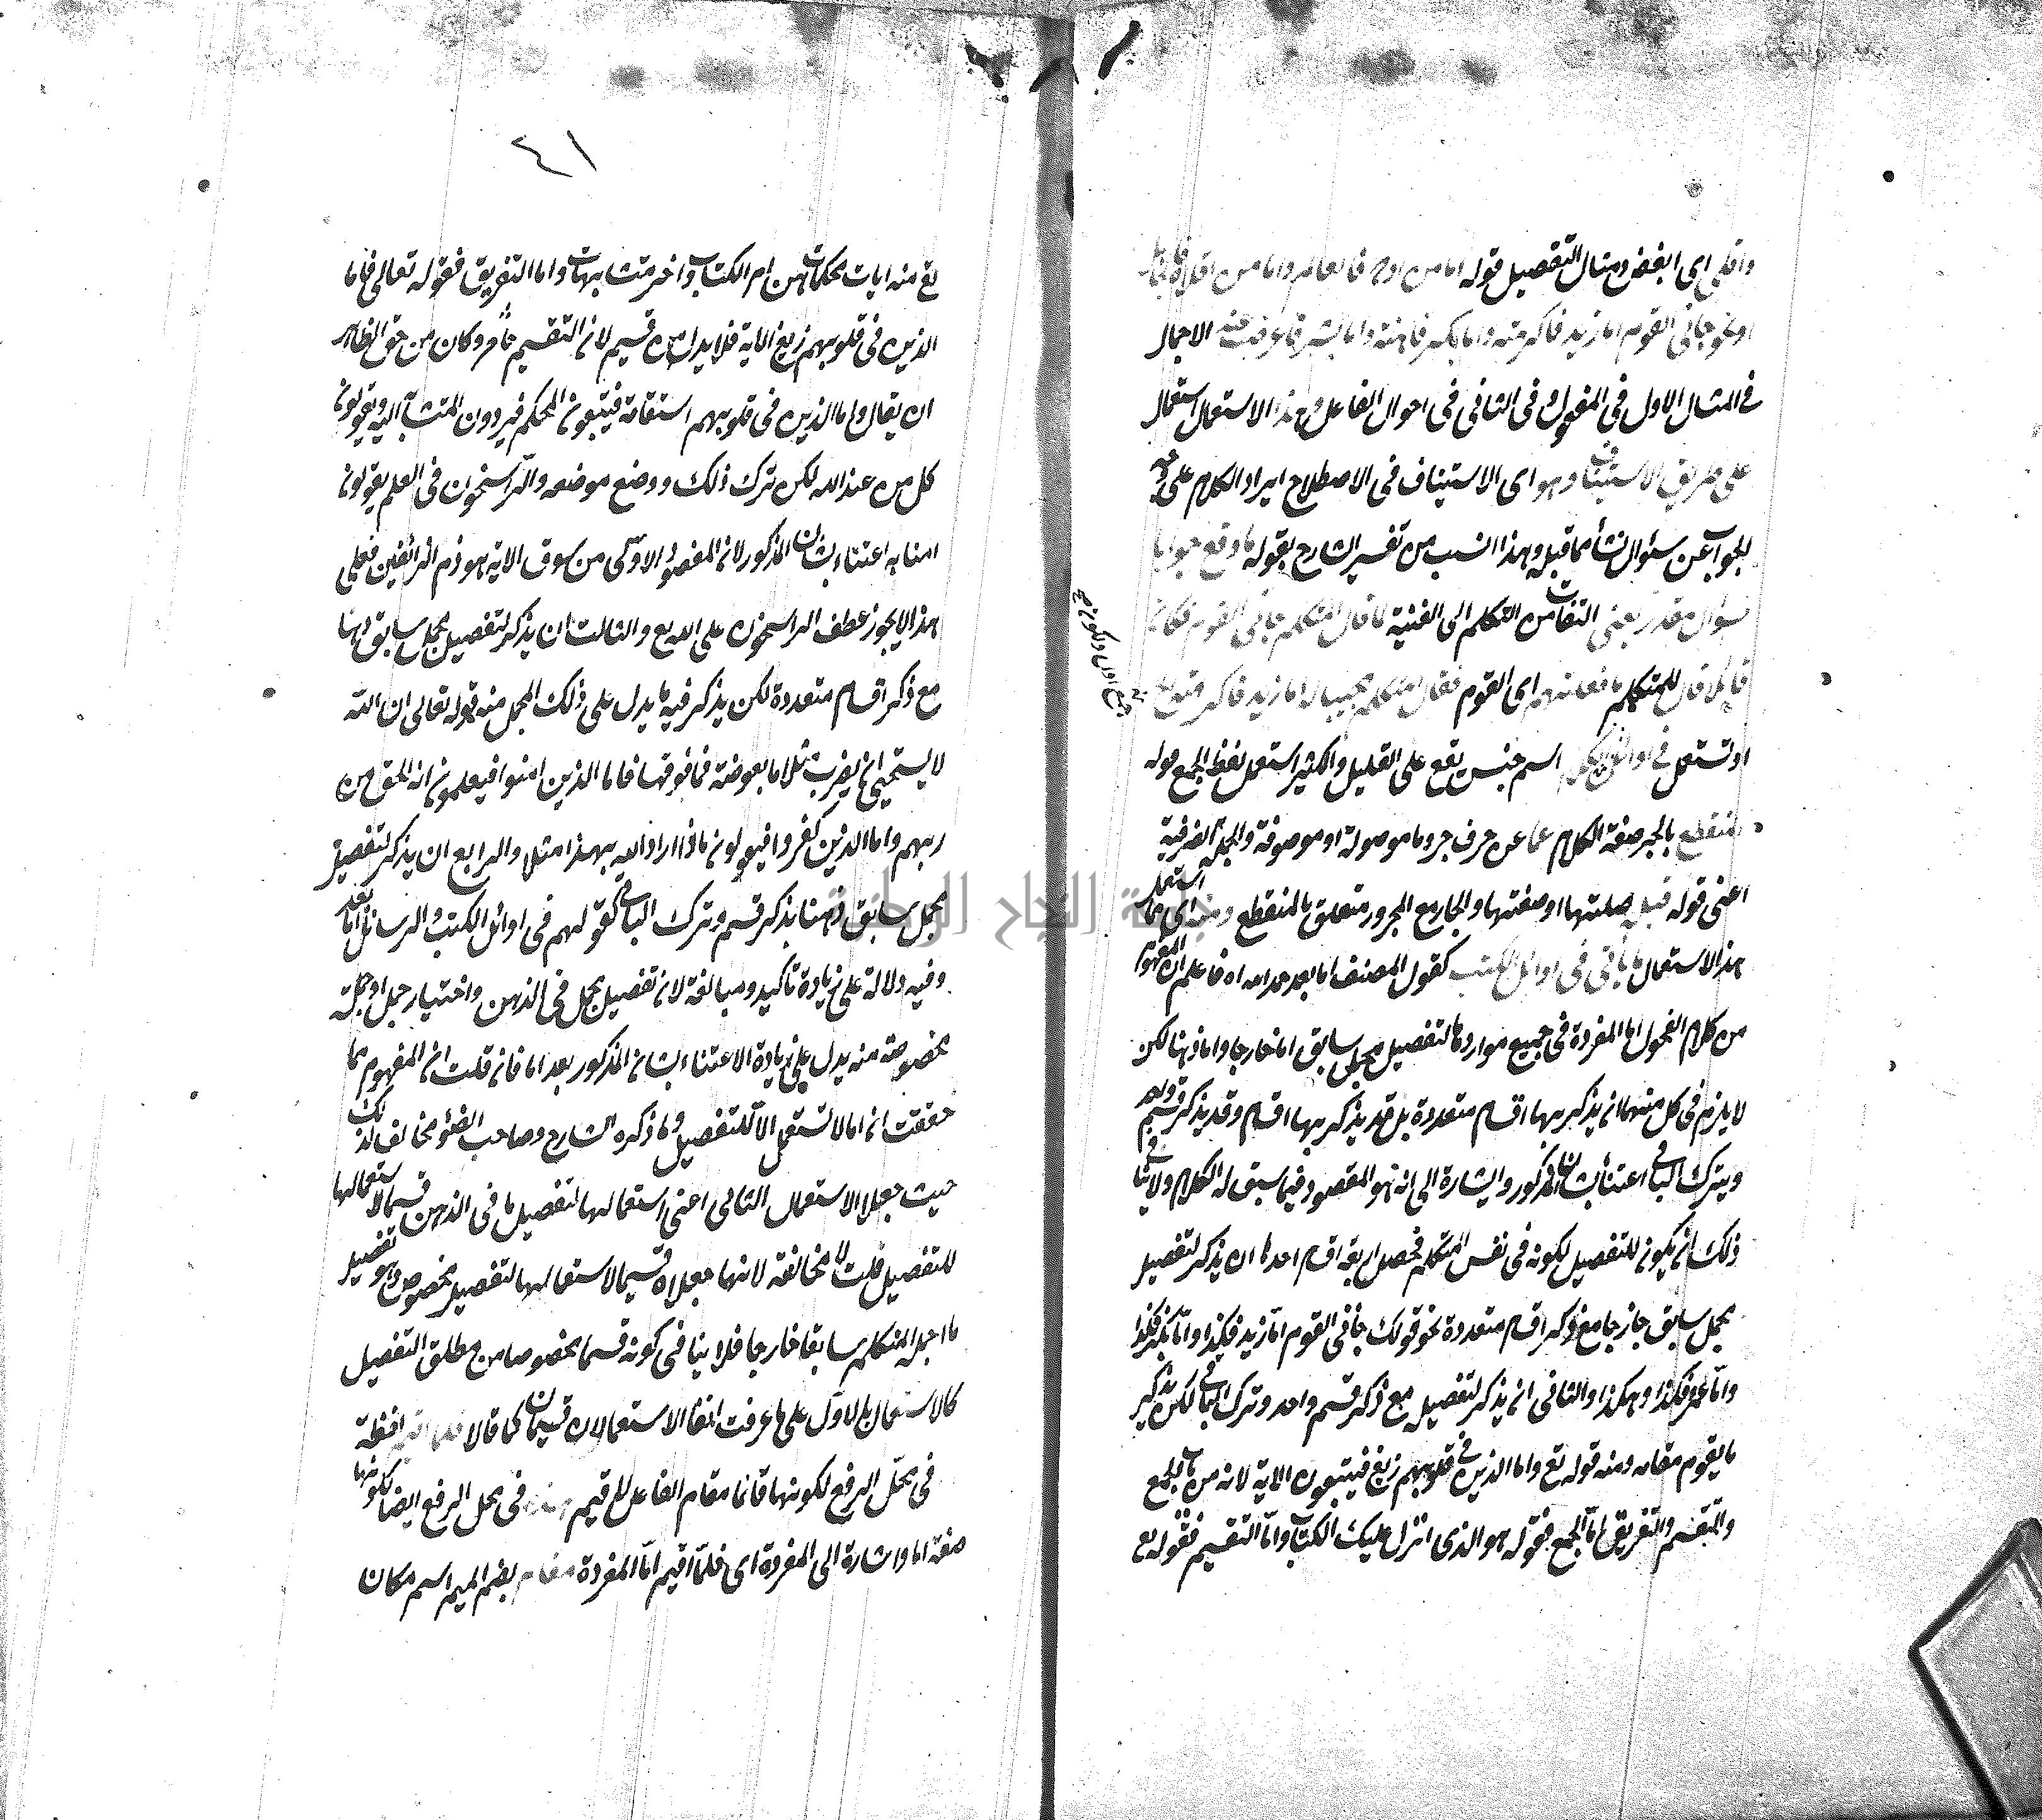 واقلى اى ابغض ومثال التفصيل قوله اما من
او نحو جاءنى القوم اما زيد فاكرمته واما بكر فاهنته واما بشر فاعرضت عنه الاجمال
فى المثال الاول فى المفعول وفى الثانى فى احوال الفاعل وهذا الاستعمال استعمال
على طريق الاستيناف وهو اى الاستيناف فى الاصطلاح ايراد الكلام على وجه
الجواب عن سئوال نشأ مما قبله وهذا انسب من تفسير الشارح بقوله ما وقع جوابا
سئوال مقدر يعنى التفات من التكلم الى الغيبة لما قال المتكلم جاءنى القوم فكان
قائلا قال للمتكلم ما فعلت بهم اى القوم فقال المتكلم مجيبا له اما زيد فاكرمته
او تستعمل فى اوائل الكلم اسم جنس يقع على القليل والكثير استعمل بلفظ الجمع قوله
المنقطع بالجر صفة الكلام عما عن حرف جر وما موصولة او موصوفة والجملة الظرفية
اعنى قوله قبله صلتها او صفتها والجار مع المجرور متعلق بالمنقطع ومنه اى مما استعمل
هذا الاستعمال ما يأتى فى اوائل الكتب كقول المصنف اما بعد حمد الله اه فاعلم ان المفهوم
من كلام الفحول اما المفردة فى جميع مواردها لتفصيل مجمل سابق اما خارجا واما ذهنا لكن
لا يلزم فى كل منهما ان يذكر بها اقسام متعددة بل قد يذكر بها اقسام وقد يذكر قسم واحد
ويترك الباقى اعتناء بشان المذكور واشارة الى انه هو المقصود فيما سبق له الكلام ولا ينافى
ذلك ان يكون للتفصيل لكونه فى نفس المتكلم فحصل اربعة اقسام احدها ان يذكر لتفصيل
مجمل سابق خارجا مع ذكر اقسام متعددة نحو قولك جاءنى القوم اما زيد فكذا واما بكر فكذا
واما عمرو فكذا وهكذا والثانى ان يذكر لتفصيله مع ذكر قسم واحد وترك الباقى لكن يذكر
ما يقوم مقامه ومنه قوله تع واما الذين فى قلوبهم زيغ فيتبعون الاية لانه من باب الجمع
والتقسيم والتفريق اما الجمع فقوله هو الذى انزل عليك الكتاب واما التقسيم فقوله تع
٤١
تع منه ايات محكمات هن ام الكتاب واخر متشابهات واما التفريق فقوله تعالى فاما
الذين فى قلوبهم زيغ الاية فلا بد له من قسيم لان التقسيم حاصر وكان من حق الظاهر
ان يقال واما الذين فى قلوبهم استقامة فيتبعون المحكم فيردون المتشابه اليه ويقولون
كل من عند الله لكن ترك ذلك ووضع موضعه والراسخون فى العلم يقولون
امنا به اعتناء بشان المذكور لان المقصود الاولى من سوق الاية هو ذم الزائغين فعلى
هذا لا يجوز عطف الراسخون على الله تع والثالث ان يذكر لتفصيل مجمل سابق ذهنا
مع ذكر اقسام متعددة لكن يذكر فيه ما يدل على ذلك المجمل منه قوله تعالى ان الله
لا يستحيى ان يضرب مثلا ما بعوضة فما فوقها فاما الذين امنوا فيعلمون انه الحق من
ربهم واما الذين كفروا فيقولون ماذا اراد الله بهذا مثلا والرابع ان يذكر لتفصيل
مجمل سابق ذهنا بذكر قسم وترك الباقى كقولهم فى اوائل الكتب والرسائل اما بعد
وفيه دلالة على زيادة تأكيد ومبالغة لان تفصيل مجمل فى الذهن واختيار جمل او جملة
مخصوصة منه يدل على زيادة الاعتناء بشان المذكور بعد اما فان قلت ان المفهوم مما
حققت ان اما لا تستعمل الا للتفصيل وما ذكره الشارح وصاحب الضوء مخالف لذلك
حيث جعلا الاستعمال الثانى اعنى استعمالها لتفصيل ما فى الذهن قسيما لاستعمالها
للتفصيل قلت لا مخالفة لانهما جعلاه قسيما لاستعمالها لتفصيل مخصوص وهو تفصيل
ما اجمله المتكلم سابقا خارجا فلا ينافى كونه قسما مخصوصا من مطلق التفصيل
كالاستعمال الاول على ما عرفت انفا الاستعمالان قسيمان كما قالا فلما لفظة
فى محل الرفع لكونها قائما مقام الفاعل لاقيم فى محل الرفع ايضا لكونها
صفة اما واشارة الى المفردة اى فلما اقيم اما المفردة مقام بضم الميم اسم مكان